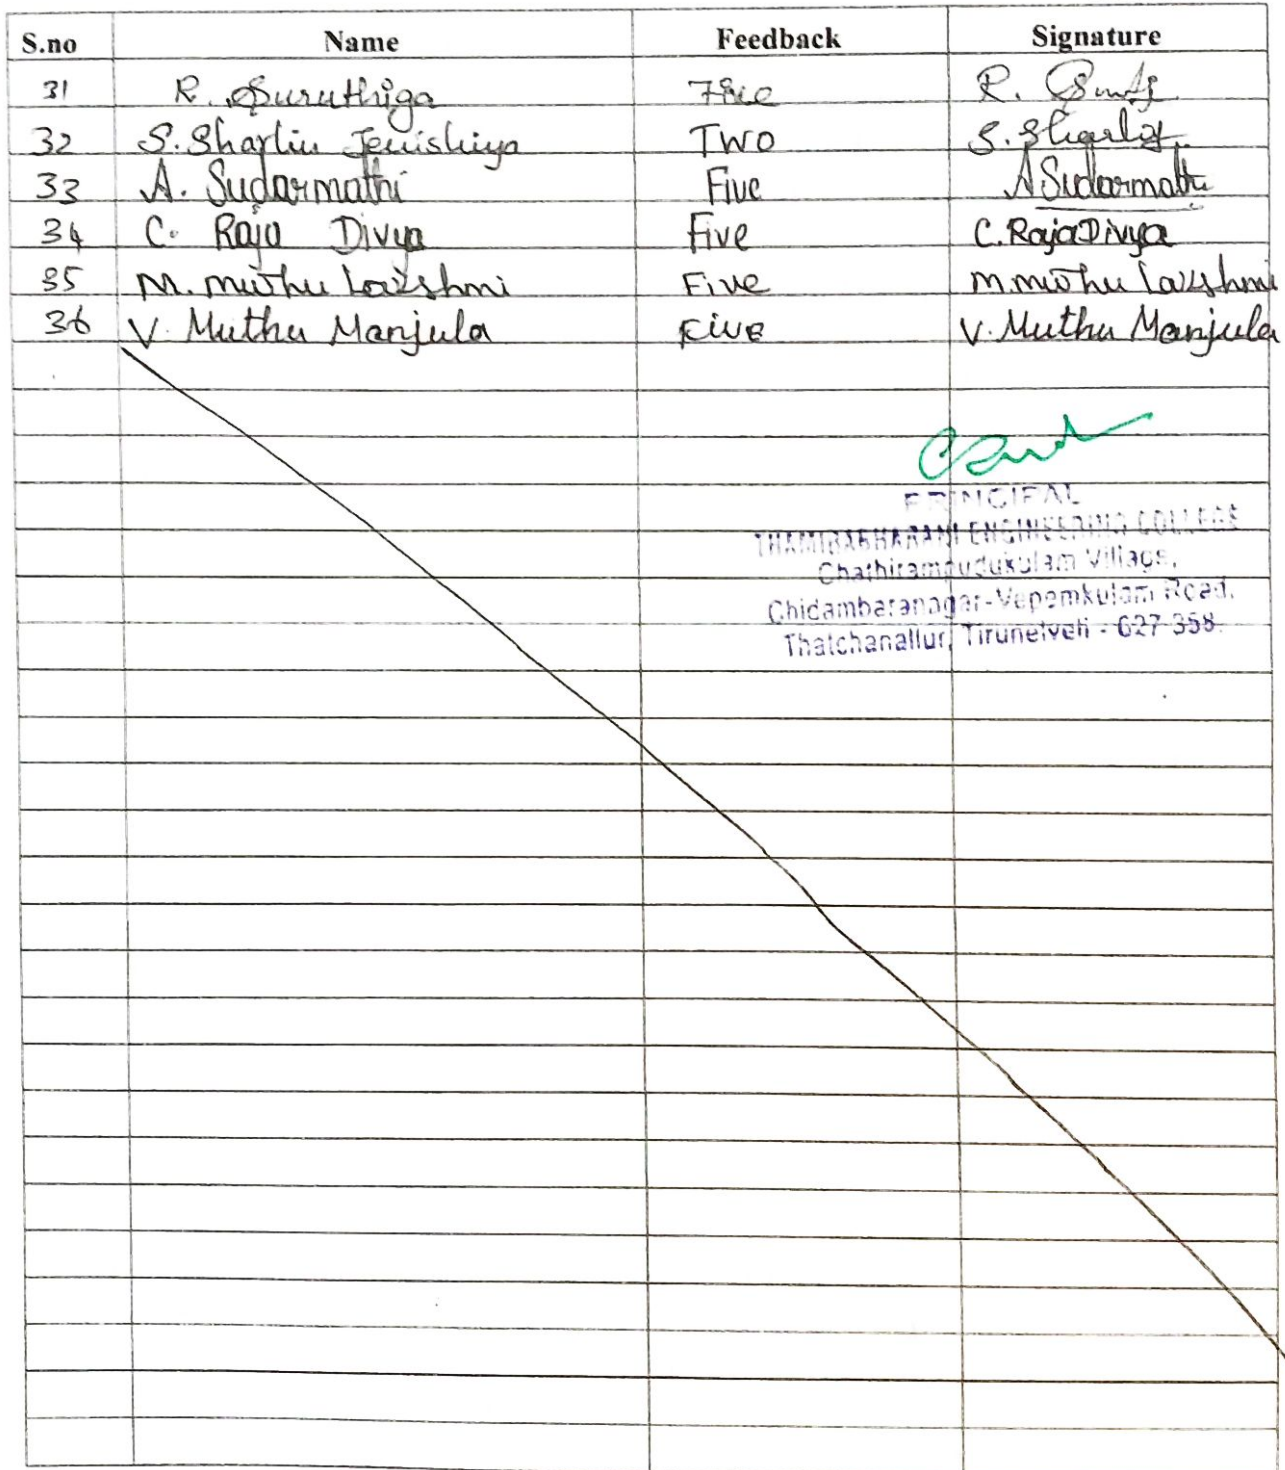 S.no Name Feedback Signature
31 R. Suruthiga Five R.
32 S. Sharlin Jenishiya Two S. Sharlin
33 A. Sudarmathi Five A Sudarmathi
34 C. Raja Divya Five C. Raja Divya
35 M. Muthu Lakshmi Five M. Muthu Lakshmi
36 V. Muthu Manjula Five V. Muthu Manjula
PRINCIPAL
THAMIRABHARANI ENGINEERING COLLEGE
Chathirampudukulam Village,
Chidambaranagar-Vepemkulam Road,
Thatchanallur, Tirunelveli - 627 358.